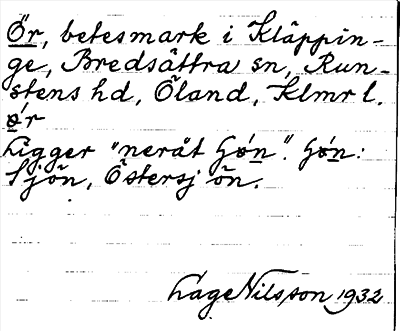 Ör, betesmark i Kläppin-
ge, Bredsättra sn, Run-
stens hd, Öland, Klmr l.
ǿr
Ligger "neråt Gǿn". Gǿn:
Sjön, Östersjön.
Lage Nilsson 1932